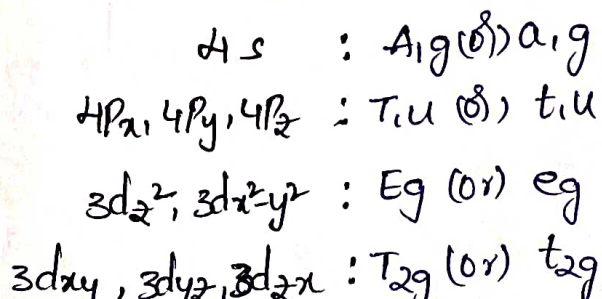 4s : A₁g (or) a₁g
4Px, 4Py, 4Pz : T₁u (or) t₁u
3dz², 3dx²-y² : Eg (or) eg
3dxy, 3dyz, 3dzx : T₂g (or) t₂g